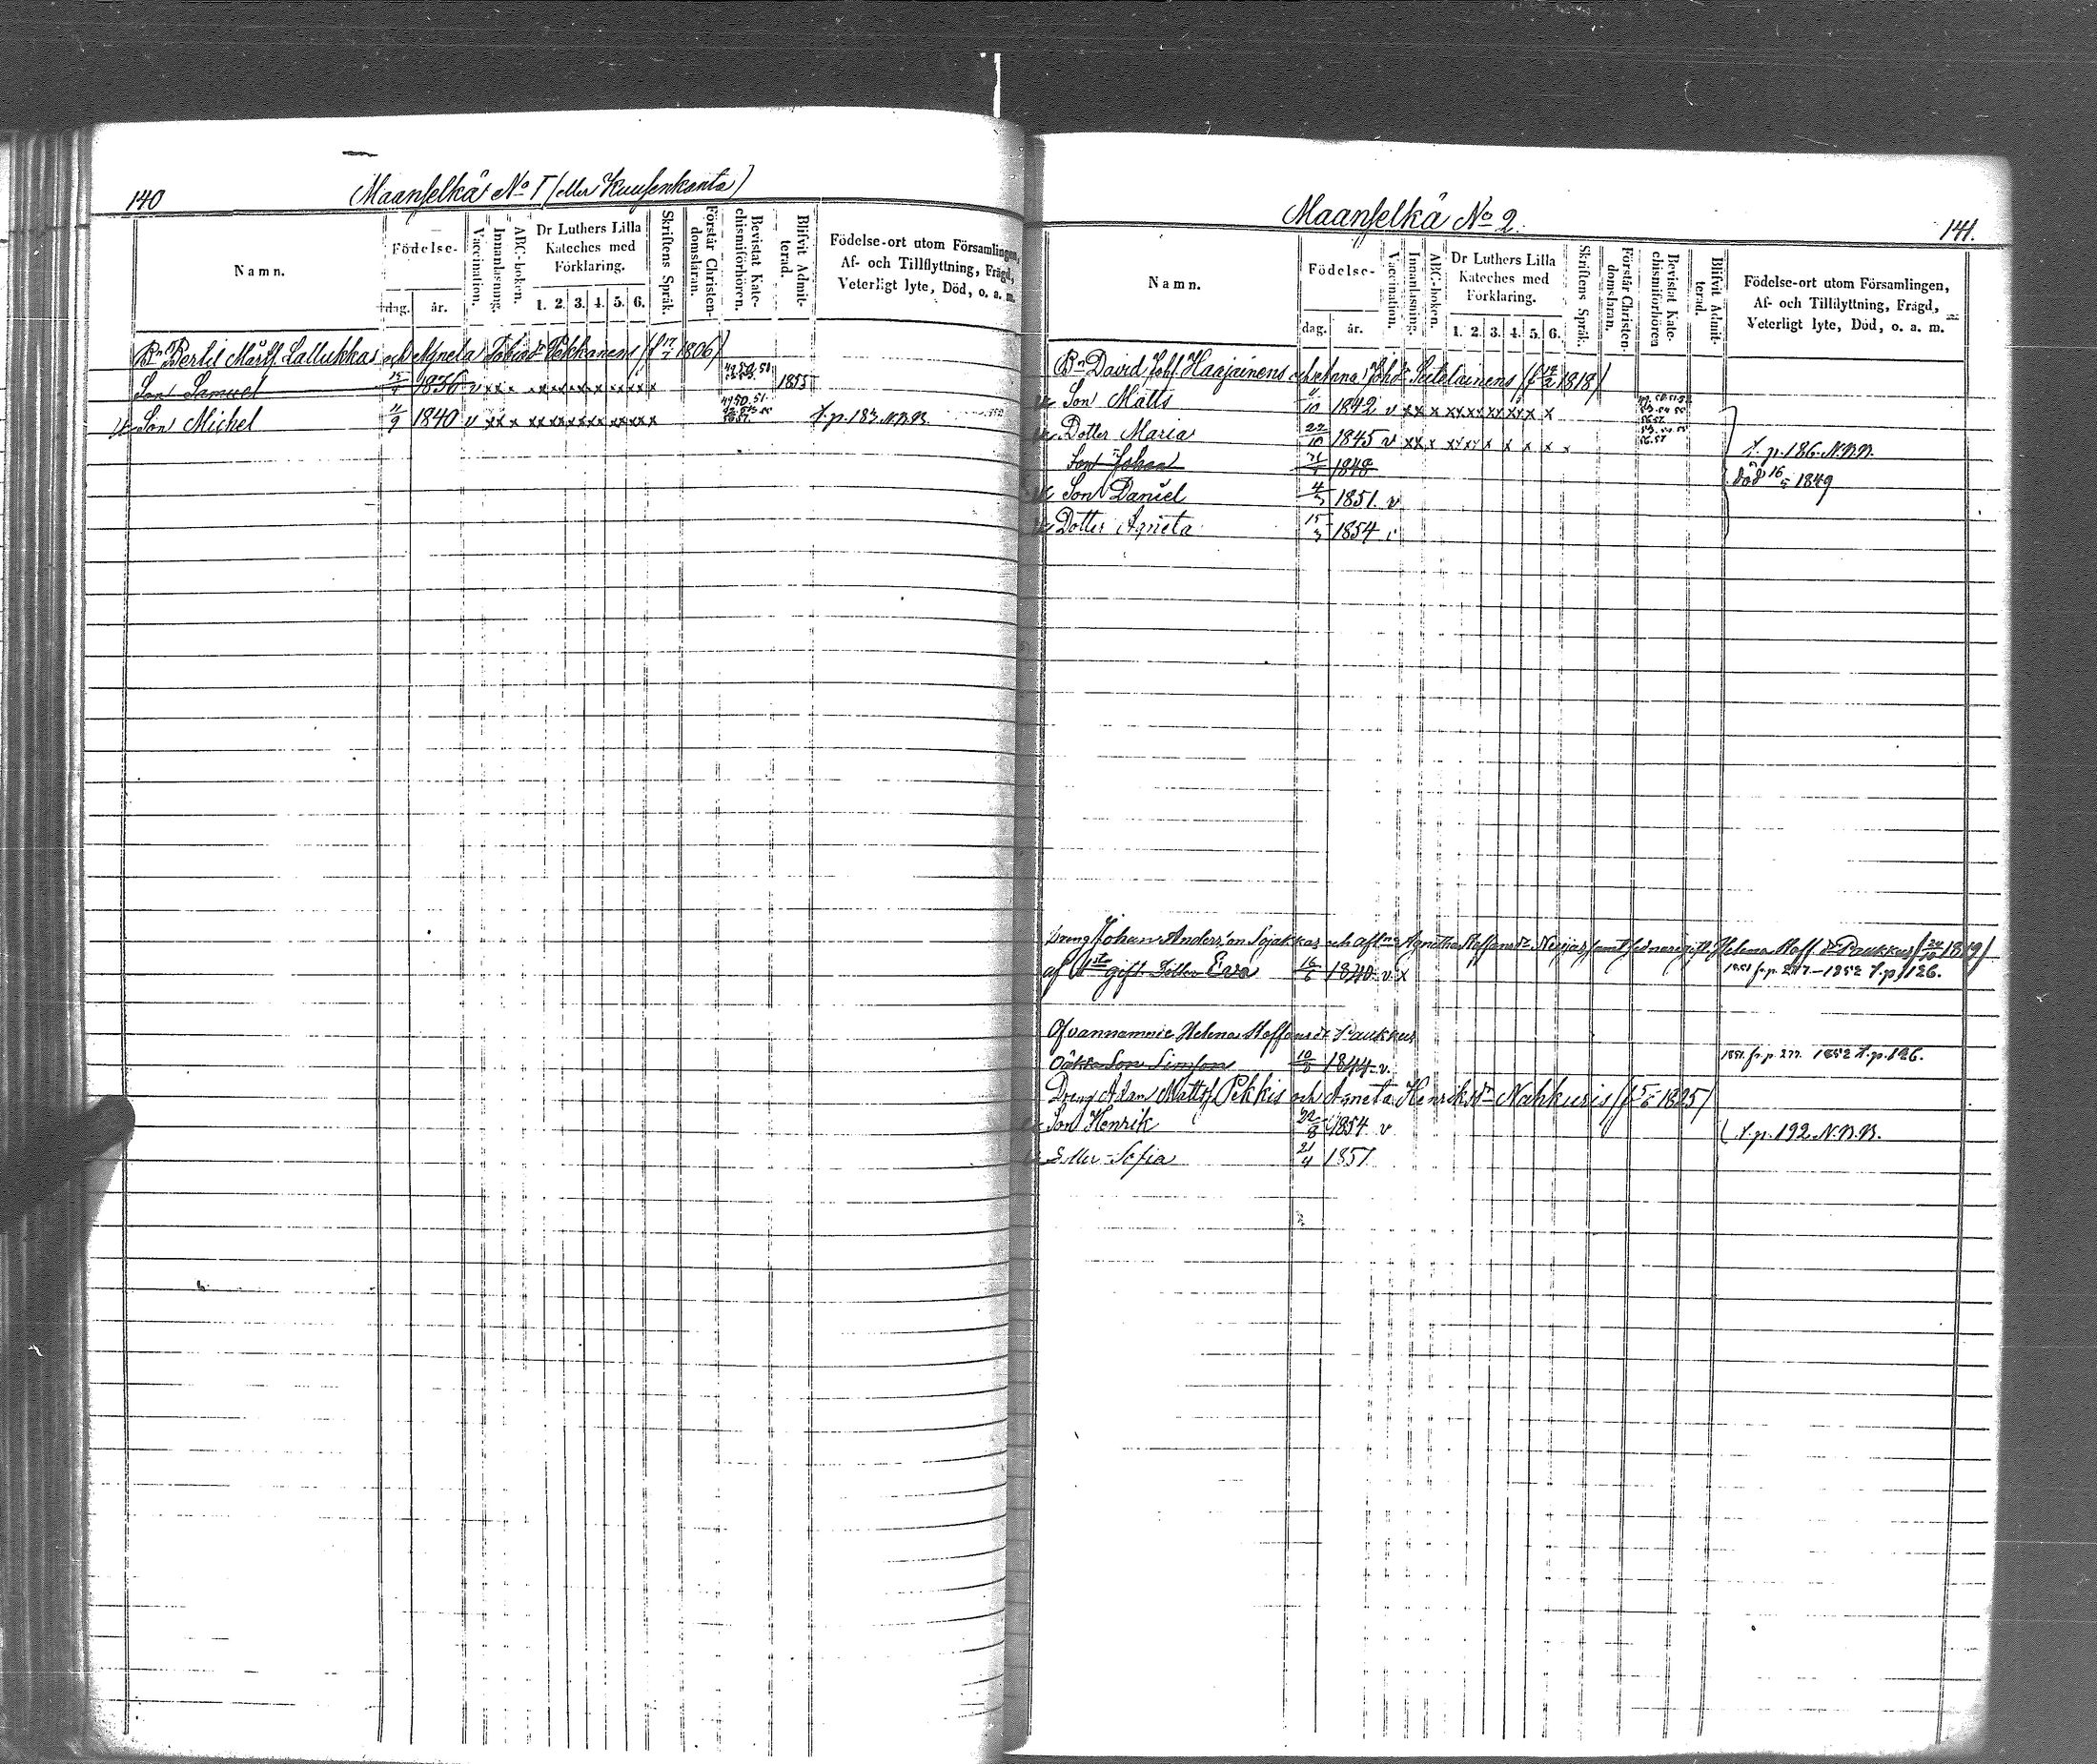 140
Maanselkä No 1 (eller Kuusenkanta)
Namn.
Födelse-
dag. år.
Vaccination.
Innanläsning.
ABC-boken.
Dr Luthers Lilla
Kateches med
Förklaring.
1. 2. 3. 4. 5. 6.
Skriftens Språk.
Förstår Christen-
domsläran.
Bevistat Kate-
chismiförhören.
Blifvit Admit-
terad.
Födelse-ort utom Församlingen,
Af- och Tillflyttning, Frägd,
Veterligt lyte, Död, o. a. m.
Bn Bertil Mårtss. Lallukkas och Agneta Tobiasdr Pekkanens (f 1806)
Son Samuel 1836 v x x x x x x x x x x x 1855
Son Michel 4/9 1840 v x x x x x x x x x x x x t. p. 183 N.B.B.
Maanselkä No 2.
141.
Namn.
Födelse-
dag. år.
Vaccination.
Innanläsning.
ABC-boken.
Dr Luthers Lilla
Kateches med
Förklaring.
1. 2. 3. 4. 5. 6.
Skriftens Språk.
Förstår Christen-
domsläran.
Bevistat Kate-
chismiförhören
Blifvit Admit-
terad.
Födelse-ort utom Församlingen,
Af- och Tillflyttning, Frägd,
Veterligt lyte, Död, o. a. m.
Bn David Johss. Haajainens och Anna Johsdr Seitelainens (f 1818)
Son Matts 1842 v x x x x x x x x x x x
Dotter Maria 22/10 1845 v x x x x x x x x x x x t. p. 186. N.B.B.
Son Johan 1848 död 16/5 1849
Son Daniel 4/3 1851. v
Dotter Agneta 15/3 1854
Dräng Johan Andersson Sojakkas och afl. Agnetha Staffansdr samt sednare gift Helena Staff.dr Paukkus (24/10 1819)
af 1sta gift. Dotter Eva 16/6 1840 v x 1851 fr. p. 277.—1852 t. p. 126.
Ofvannämnde Helena Staffansdr Paukkus
Oäkta Son Simson 1844 v. 1851. fr. p. 277. 1852 t. p. 126.
Dreng Adam Mattss. Pekkis och Agneta Henriksdr Nahkuris (f 1825)
Son Henrik 22/8 1854 v t. p. 192 N.B.B.
Dotter Sofia 21/4 1857